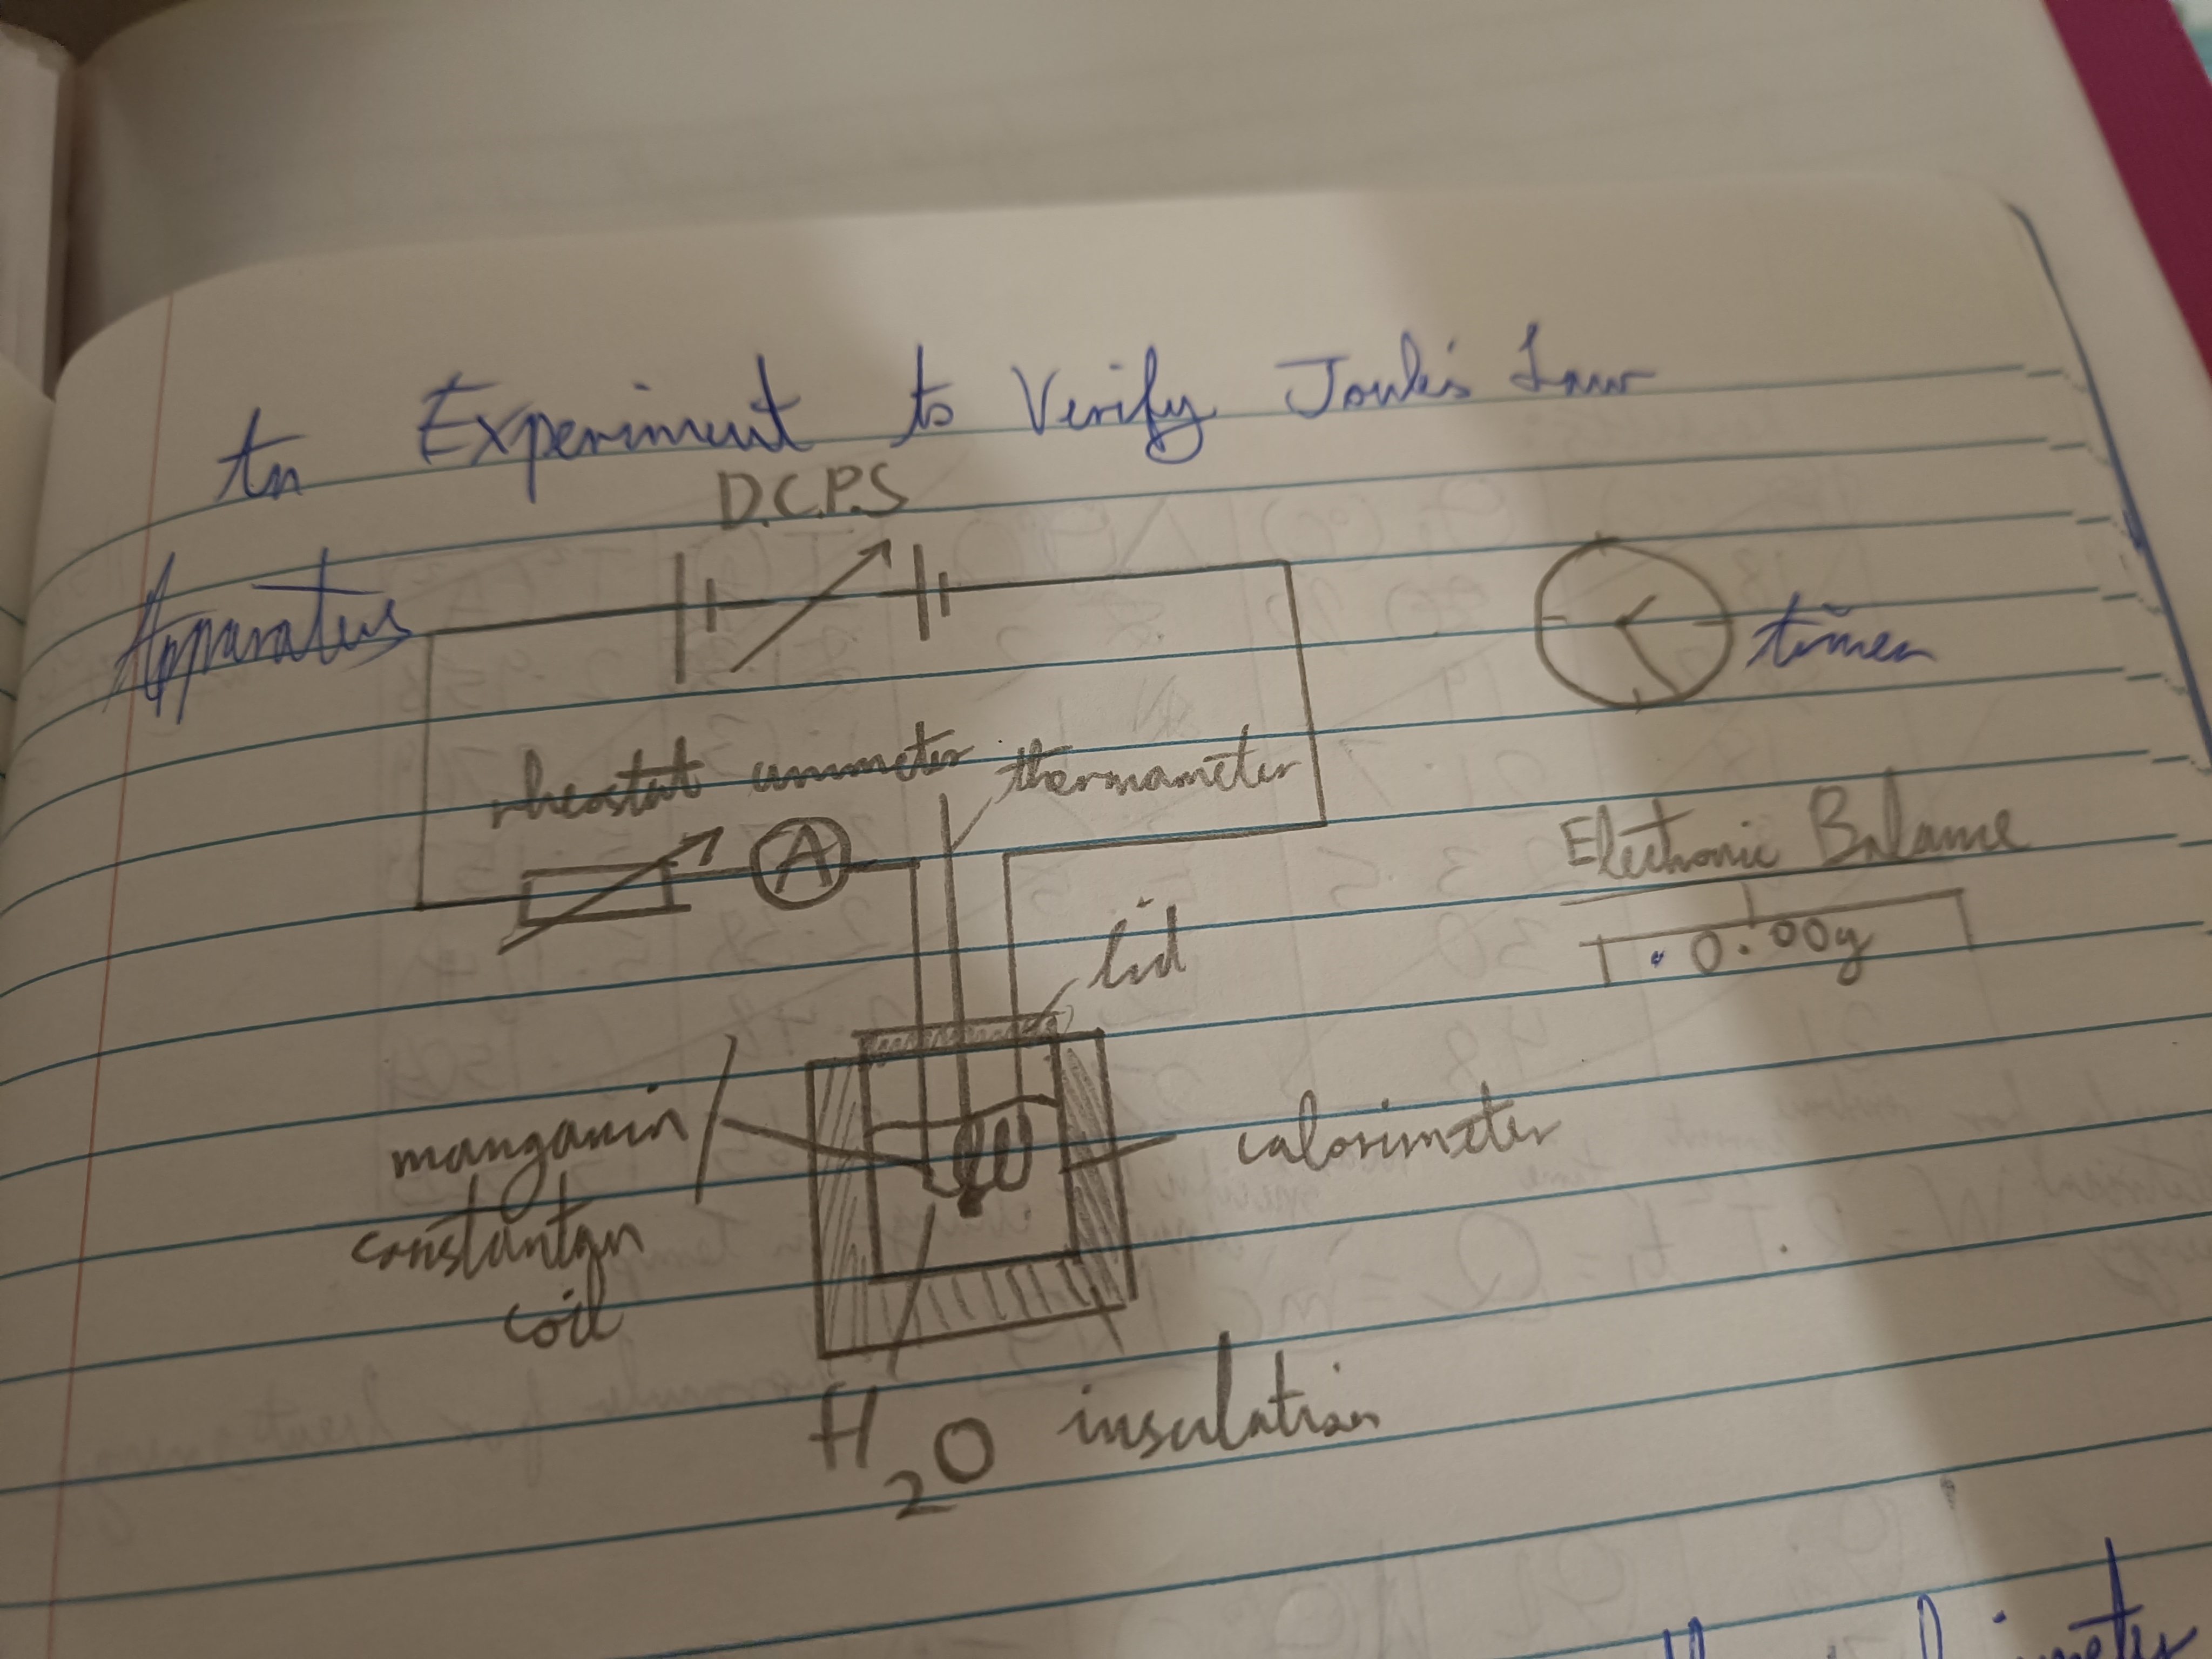 An Experiment to Verify Joule's Law
D.C.P.S
Apparatus
timer
rheostat ammeter thermometer
A
Electronic Balance
0.00g
lid
manganin/
constantan
coil
calorimeter
H₂O insulation